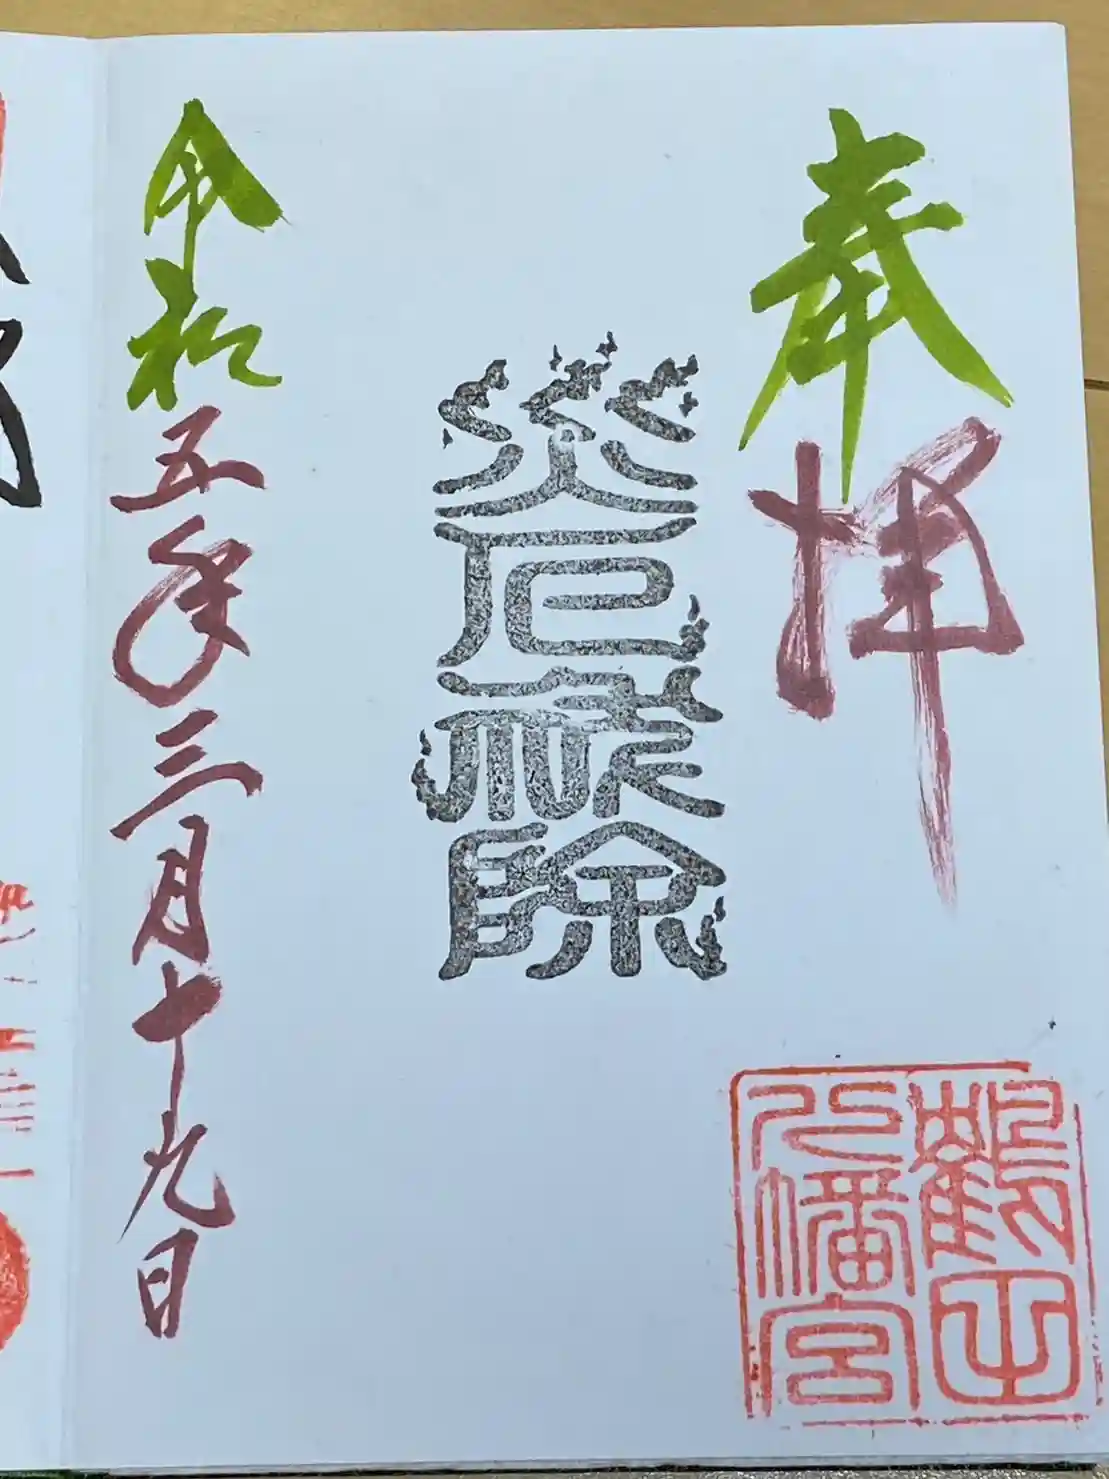 奉拝
災厄祓除
令和五年三月十九日
鶴山
八幡宮